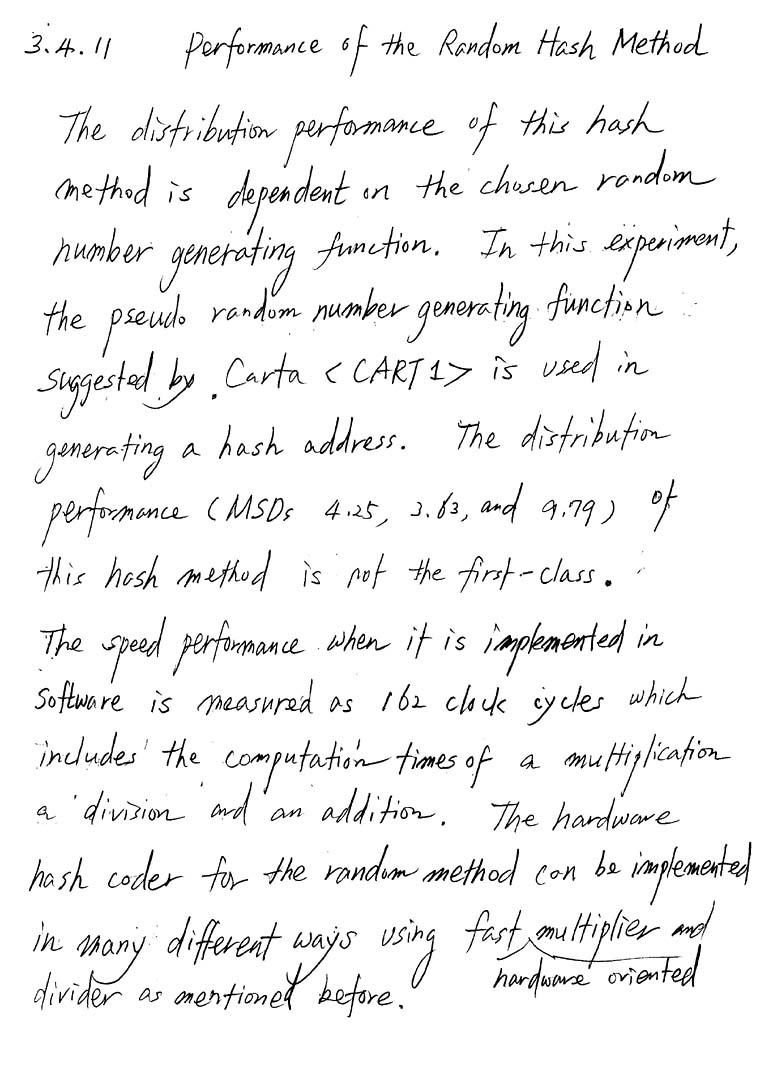 3.4.11 Performance of the Random Hash Method
The distribution performance of this hash
method is dependent on the chosen random
number generating function. In this experiment,
the pseudo random number generating function
suggested by Carta <CART1> is used in
generating a hash address. The distribution
performance (MSDs 4.25, 3.63, and 9.79) of
this hash method is not the first-class.
The speed performance when it is implemented in
software is measured as 162 clock cycles which
includes the computation times of a multiplication
a division and an addition. The hardware
hash coder for the random method can be implemented
in many different ways using fast multiplier and
hardware oriented
divider as mentioned before.